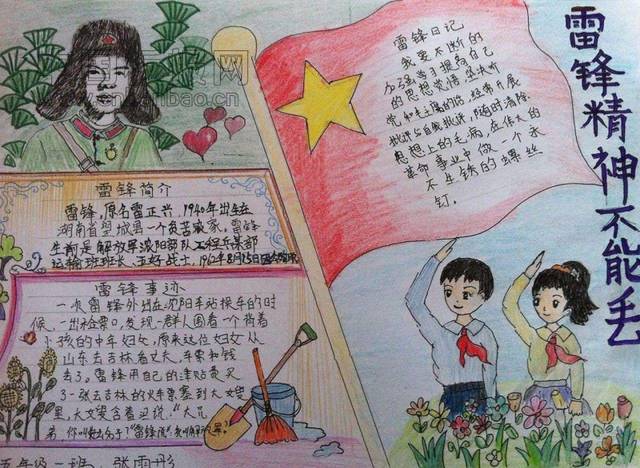 雷锋精神不能丢
雷锋日记
我要不断的
加强学习提高自己
的思想觉悟,坚决听
党和毛主席的话,经常开展
批评与自我批评,随时清除
思想上的毛病,在伟大的
革命事业中做一个永
不生锈的螺丝
钉。
雷锋简介
雷锋,原名雷正兴,1940年出生在
湖南省望城县一个贫苦农家。雷锋
生前是解放军沈阳部队工程兵某部
运输班班长、五好战士,1962年8月15日
雷锋事迹
一次雷锋外出在沈阳车站换车的时
候,一出检票口,发现一群人围着一个背着
小孩的中年妇女,原来这位妇女从
山东去吉林看丈夫,车票和钱
丢了。雷锋用自己的津贴费买
了一张去吉林的火车票塞到大嫂
里,大嫂含着泪说:“大兄
弟,你叫什么名字
五年级一班 张雨彤